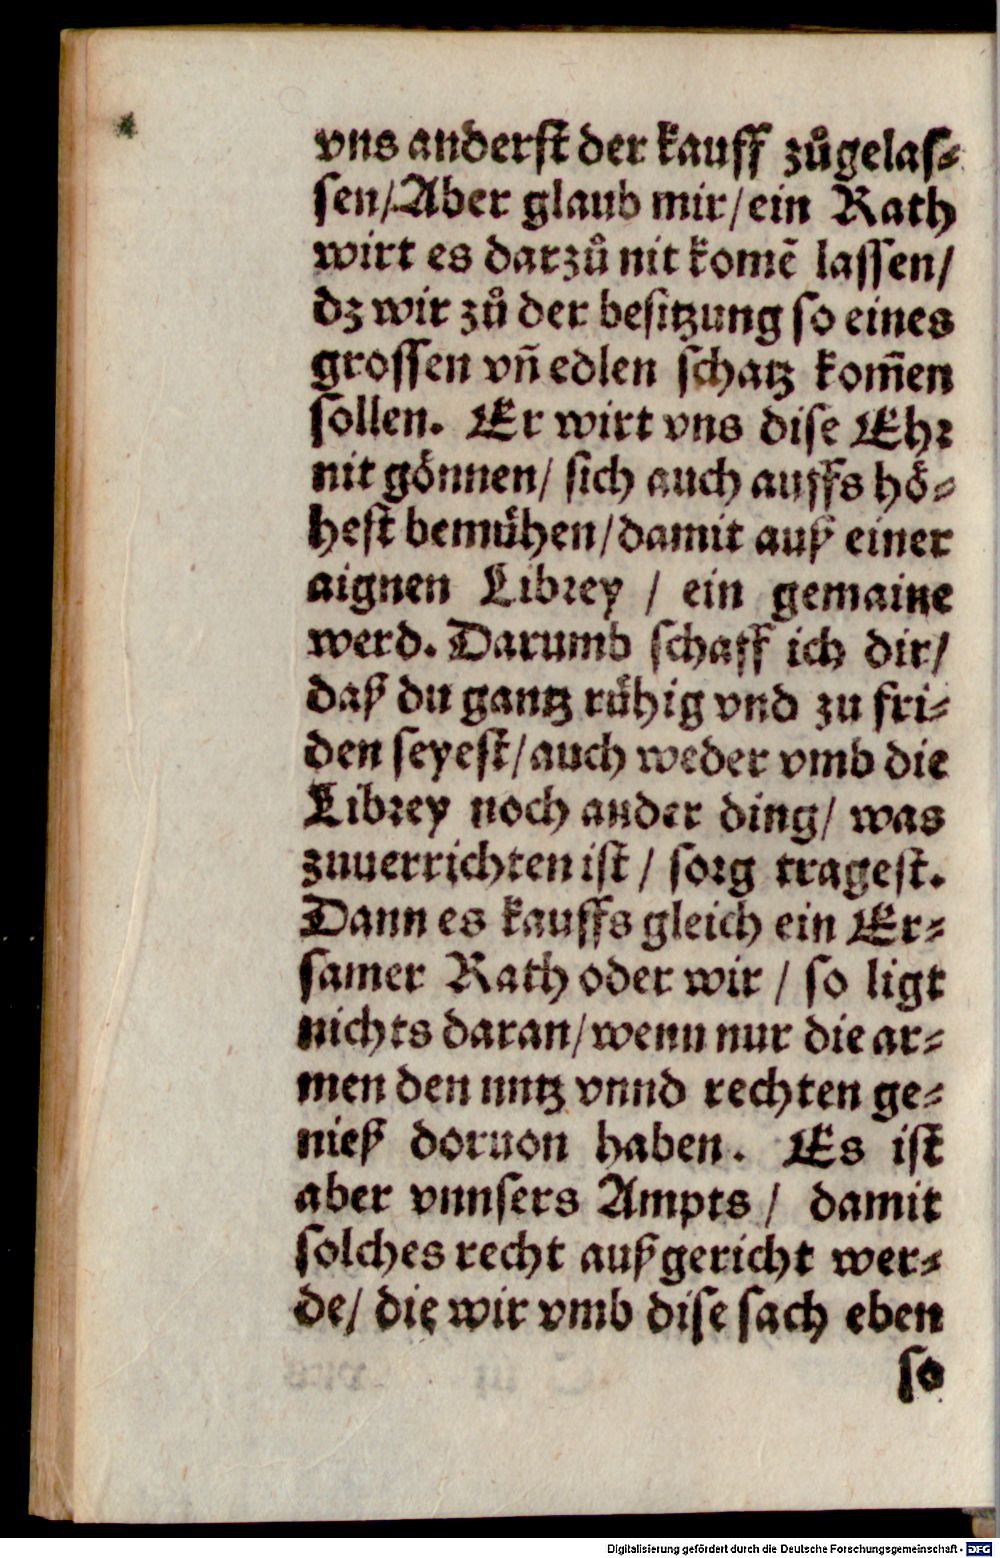 vns anderst der kauff zůgelas-
sen/ Aber glaub mir/ ein Rath
wirt es darzů nit komē lassen/
dz wir zů der besitzung so eines
grossen vñ edlen schatz kom̄en
sollen. Er wirt vns dise Ehr
nit gönnen/ sich auch auffs hö-
hest bemühen/ damit auß einer
aignen Librey / ein gemaine
werd. Darumb schaff ich dir/
daß du gantz rühig vnd zu fri-
den seyest/ auch weder vmb die
Librey noch ander ding/ was
zuuerrichten ist / sorg tragest.
Dann es kauffs gleich ein Er-
samer Rath oder wir / so ligt
nichts daran/ wenn nur die ar-
men den nutz vnnd rechten ge-
nieß doruon haben. Es ist
aber vnnsers Ampts / damit
solches recht außgericht wer-
de/ die wir vmb dise sach eben
so
Digitalisierung gefördert durch die Deutsche Forschungsgemeinschaft - DFG